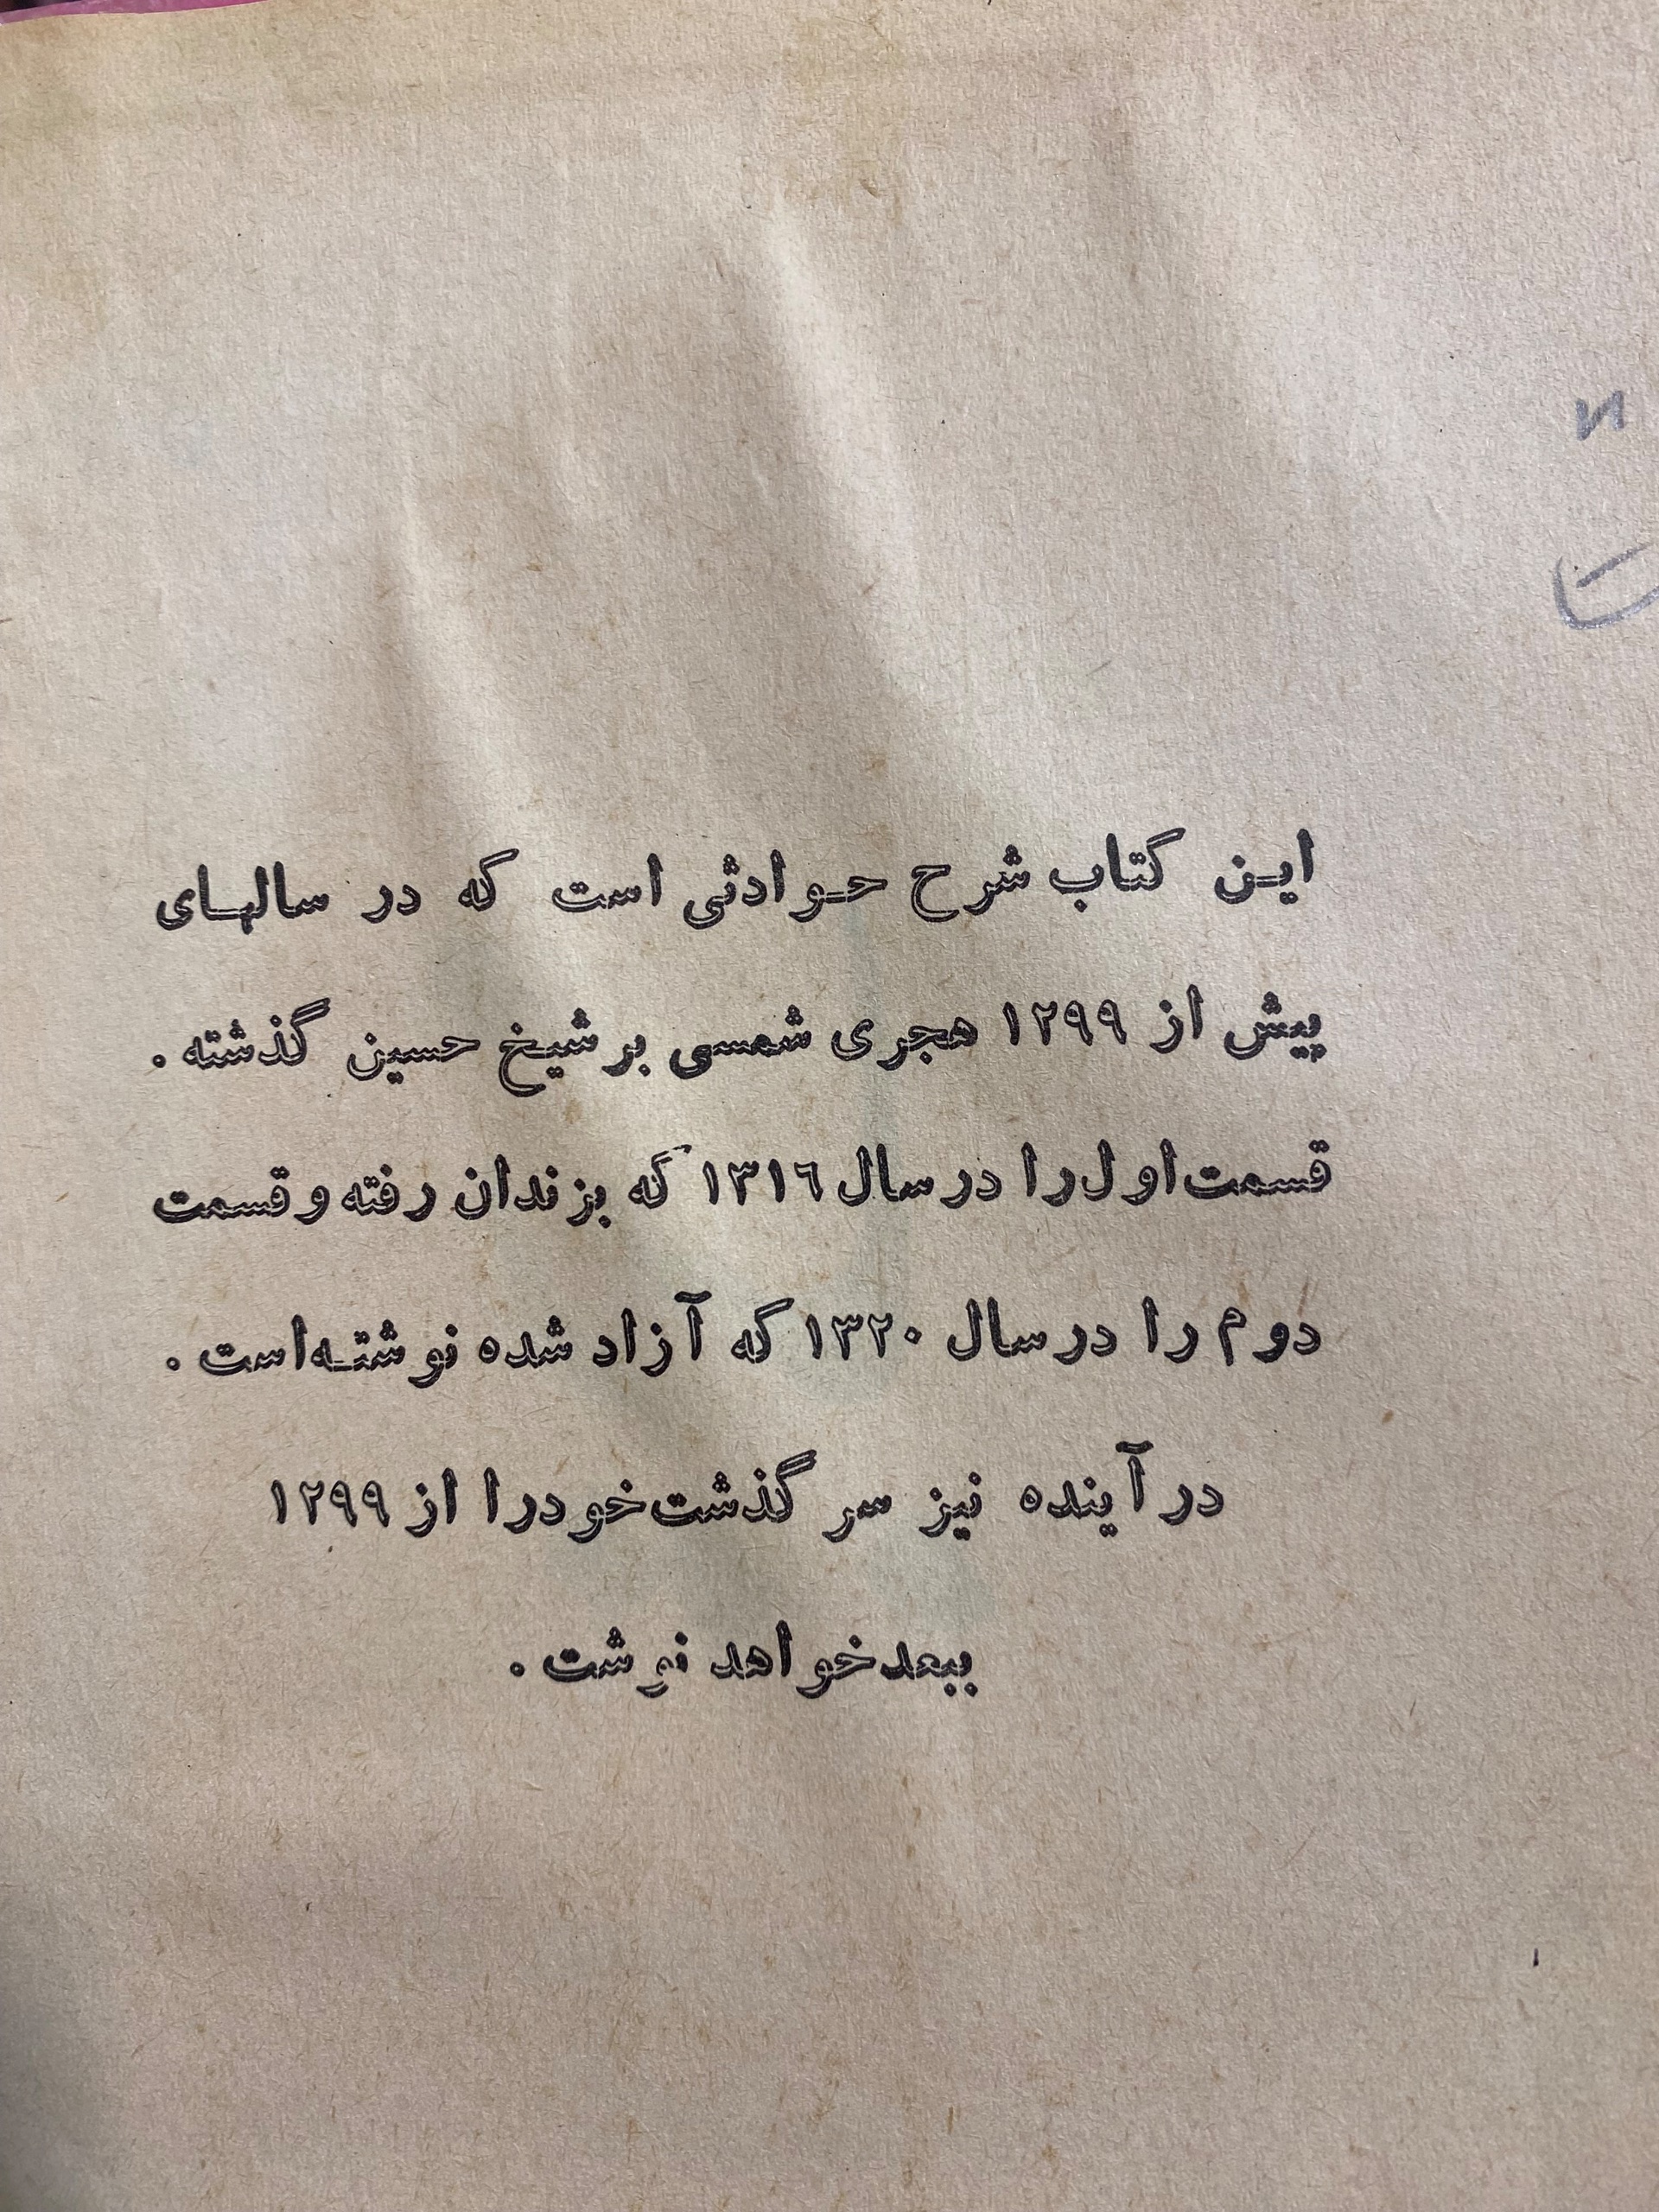 این کتاب شرح حوادثی است که در سالهای
پیش از ۱۲۹۹ هجری شمسی بر شیخ حسین گذشته .
قسمت اول را در سال ۱۳۱۶ که بزندان رفته و قسمت
دوم را در سال ۱۳۲۰ که آزاد شده نوشته‌است .
در آینده نیز سر گذشت خود را از ۱۲۹۹
ببعد خواهد نوشت .